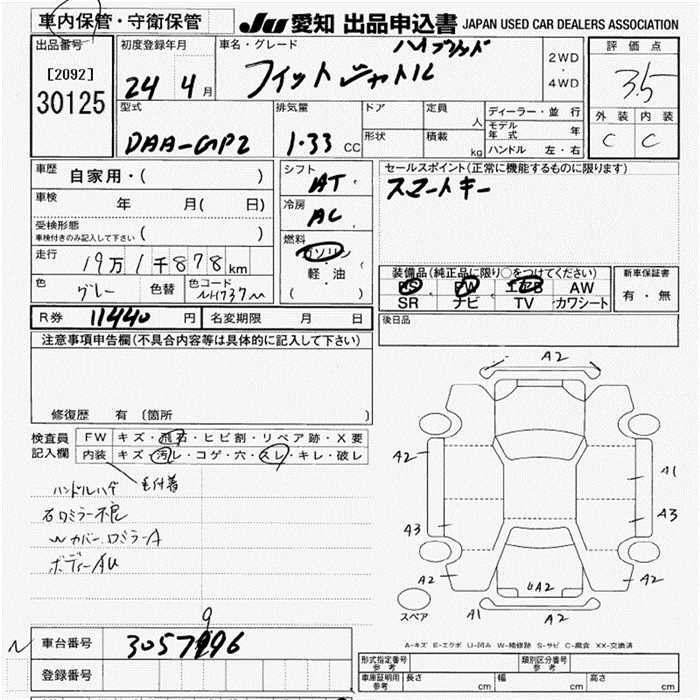 車内保管・守衛保管
JU 愛知 出品申込書 JAPAN USED CAR DEALERS ASSOCIATION
出品番号
[2092]
30125
初度登録年月
24 4月
車名・グレード
ハイブリッド
フィットシャトル
2WD
・
4WD
評価点
3.5
外装 内装
C C
型式
DAA-GP2
排気量
1.33 CC
ドア
形状
定員 人
積載 kg
ディーラー・並行
モデル年式 年
ハンドル 左・右
車歴
自家用・( )
車検 年 月( 日)
受検形態
車検付きのみ記入して下さい ( )
走行 19万1千878km
色 グレー 色替 色コード NH737M
シフト
AT
冷房
AC
燃料
ガソリン
・
軽・油
( )
セールスポイント(正常に機能するものに限ります)
スマートキー
装備品(純正品に限り○をつけてください)
PS PW エアB AW
SR ナビ TV カワシート
新車保証書
有・無
R券 11440 円 名変期限 月 日
後日品
注意事項申告欄(不具合内容等は具体的に記入して下さい)
修復歴 有 〔箇所 〕
検査員
記入欄
FW キズ・飛石・ヒビ割・リペア跡・X要
内装 キズ・汚レ・コゲ・穴・スレ・キレ・破レ
毛付着
ハンドルハゲ
右ロミラー不良
〃カバー、ロミラーA
ボディーAU
A2
A2
A1
A3
A3
A2
A2
UA2
A1
A2
スペア
A-キズ E-エクボ U-凹み W-補修跡 S-サビ C-腐食 XX-交換済
車台番号
9
3057996
登録番号
形式指定番号
参考
類別区分番号
参考
車庫証明用
参考
長さ cm 幅 cm 高さ cm